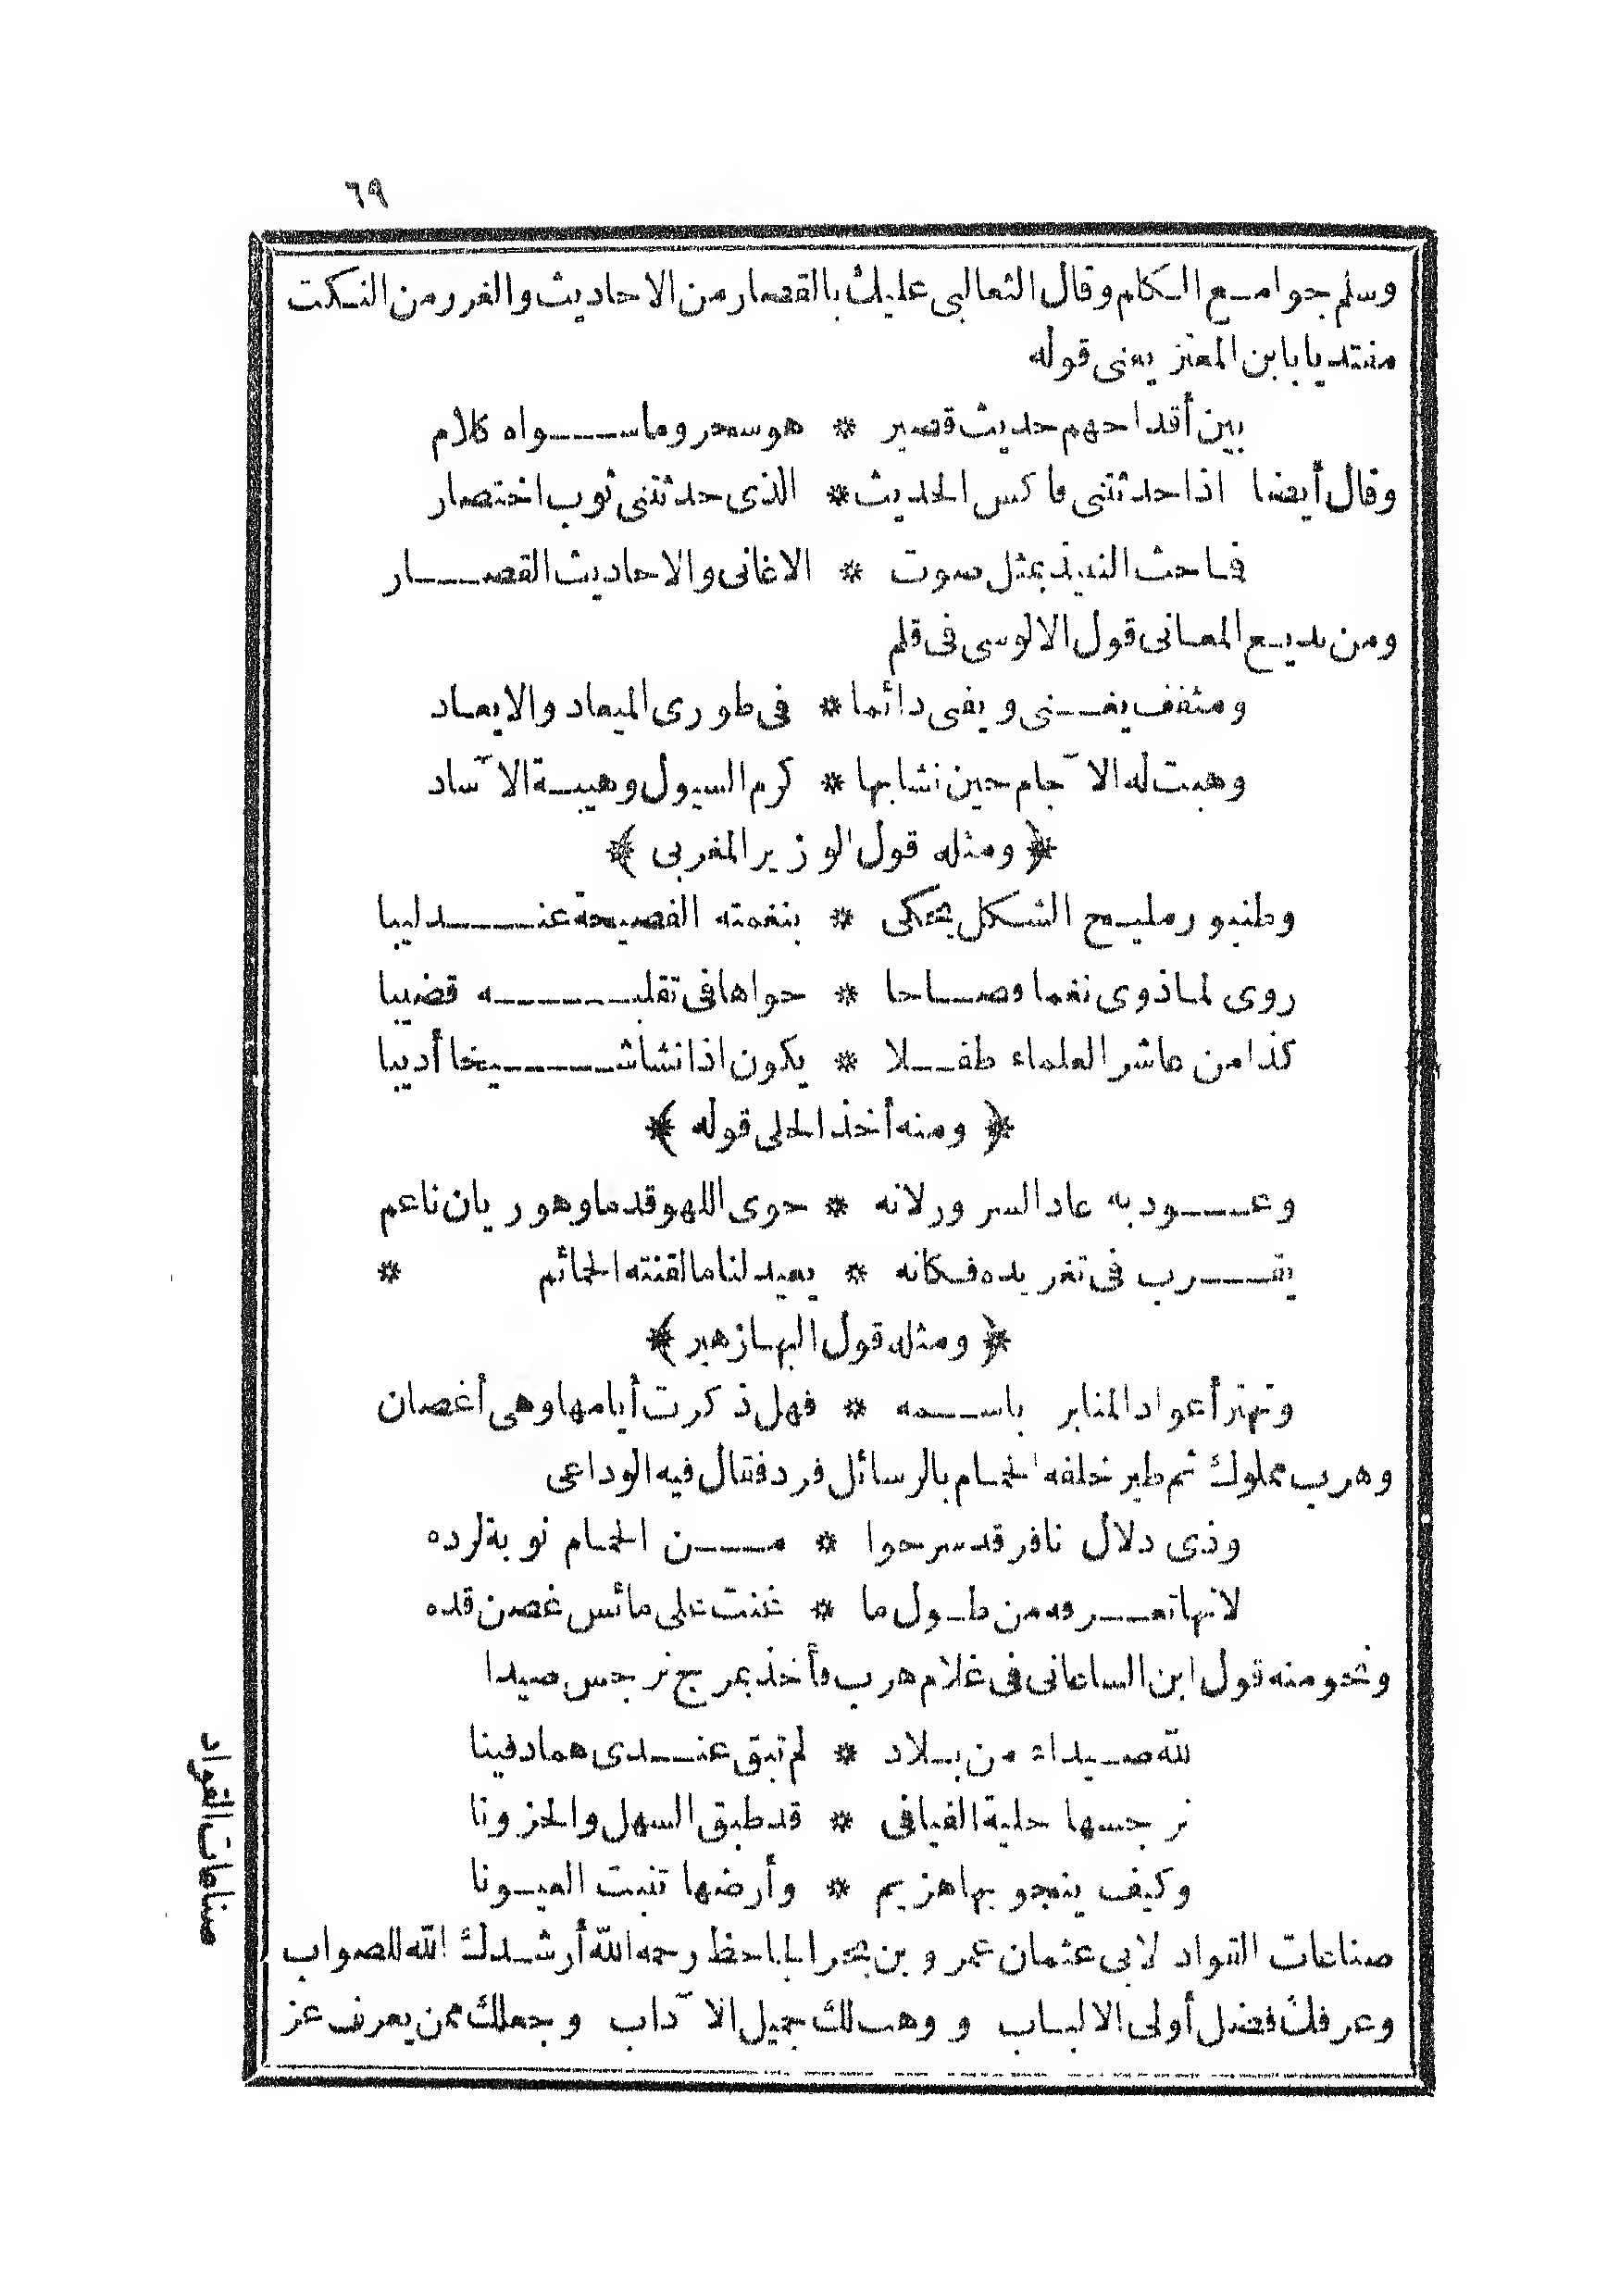 ٦٩
وسلم جوامع الكلم وقال الثعالبى عليك بالقصار من الاحاديث والغرر من النكت
مقتديا بابن المعتز يعنى قوله
بين أقداحهم حديث قصير * هو سحر وما سواه كلام
وقال أيضا اذا حدثتنى فاكس الحديث * الذى حدثتنى ثوب اختصار
فاحث النبيذ بمثل صوت * الاغانى والاحاديث القصار
ومن بديع المعانى قول الالوسى فى قلم
ومثقف يغنى ويفنى دائما * فى طورى الميعاد والايعاد
وهبت له الآجام حين نشابها * كرم السيول وهيبة الآساد
﴿ ومثله قول الوزير المغربى ﴾
وطنبور مليح الشكل يحكى * بنغمته الفصيحة عندليبا
روى لما ذوى نغما فصاحا * حواها فى تقلبه قضيبا
كذا من عاشر العلماء طفلا * يكون اذا نشا شيخا أديبا
﴿ ومنه أخذ الحلى قوله ﴾
وعود به عاد السرور لانه * حوى اللهو قدما وهو ريان ناعم
يغرب فى تغريده فكانه * يعيد لنا ما لقنته الحمائم *
﴿ ومثله قول البها زهير ﴾
وتهتز أعواد المنابر باسمه * فهل ذكرت أيامها وهى أغصان
وهرب مملوك ثم طير خلفه الحمام بالرسائل فرد فقال فيه الوداعى
وذى دلال نافر قد سرحوا * من الحمام نوبة لرده
لانها تعرفه من طول ما * غنت على مائس غصن قده
ونحو منه قول ابن الساعانى فى غلام هرب فأخذ بمرج نرجس صيدا
لله صيداء من بلاد * لم تبق عندى هما دفينا
نرجسها حلية الفيافى * قد طبق السهل والحزونا
وكيف ينجو بها هزيم * وأرضها تنبت العيونا
صناعات القواد
صناعات القواد لابى عثمان عمرو بن بحر الجاحظ رحمه الله أرشدك الله للصواب
وعرفك فضل أولى الالباب ووهب لك جميل الآداب وجعلك ممن يعرف عز